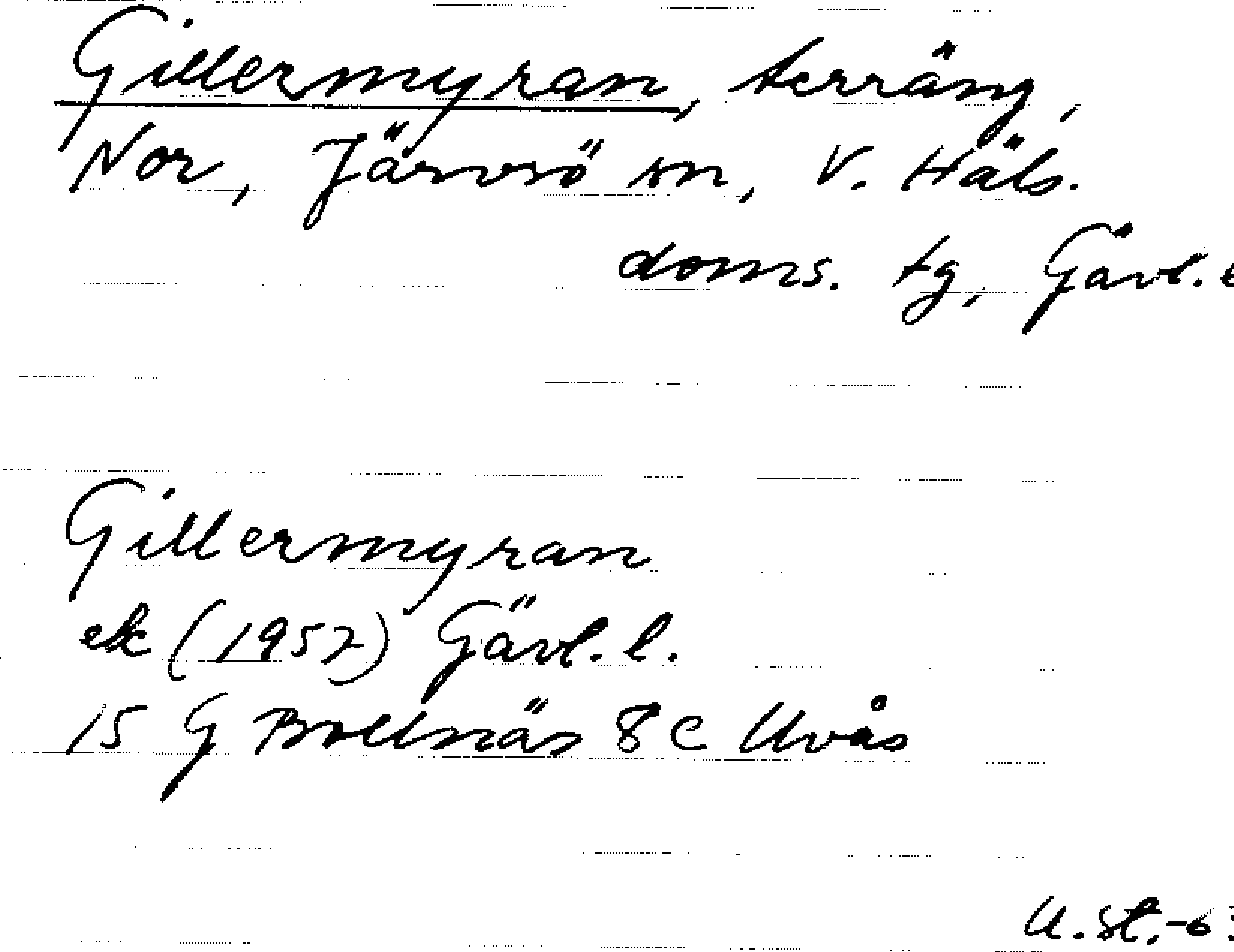 Gillermyran, terräng,
Nor, Järvsö sn, V. Häls.
doms. tg, Gävl.
Gillermyran
ek (1957) Gävl. l.
15 G Bollnäs 8 c Uvås
U. St. -63